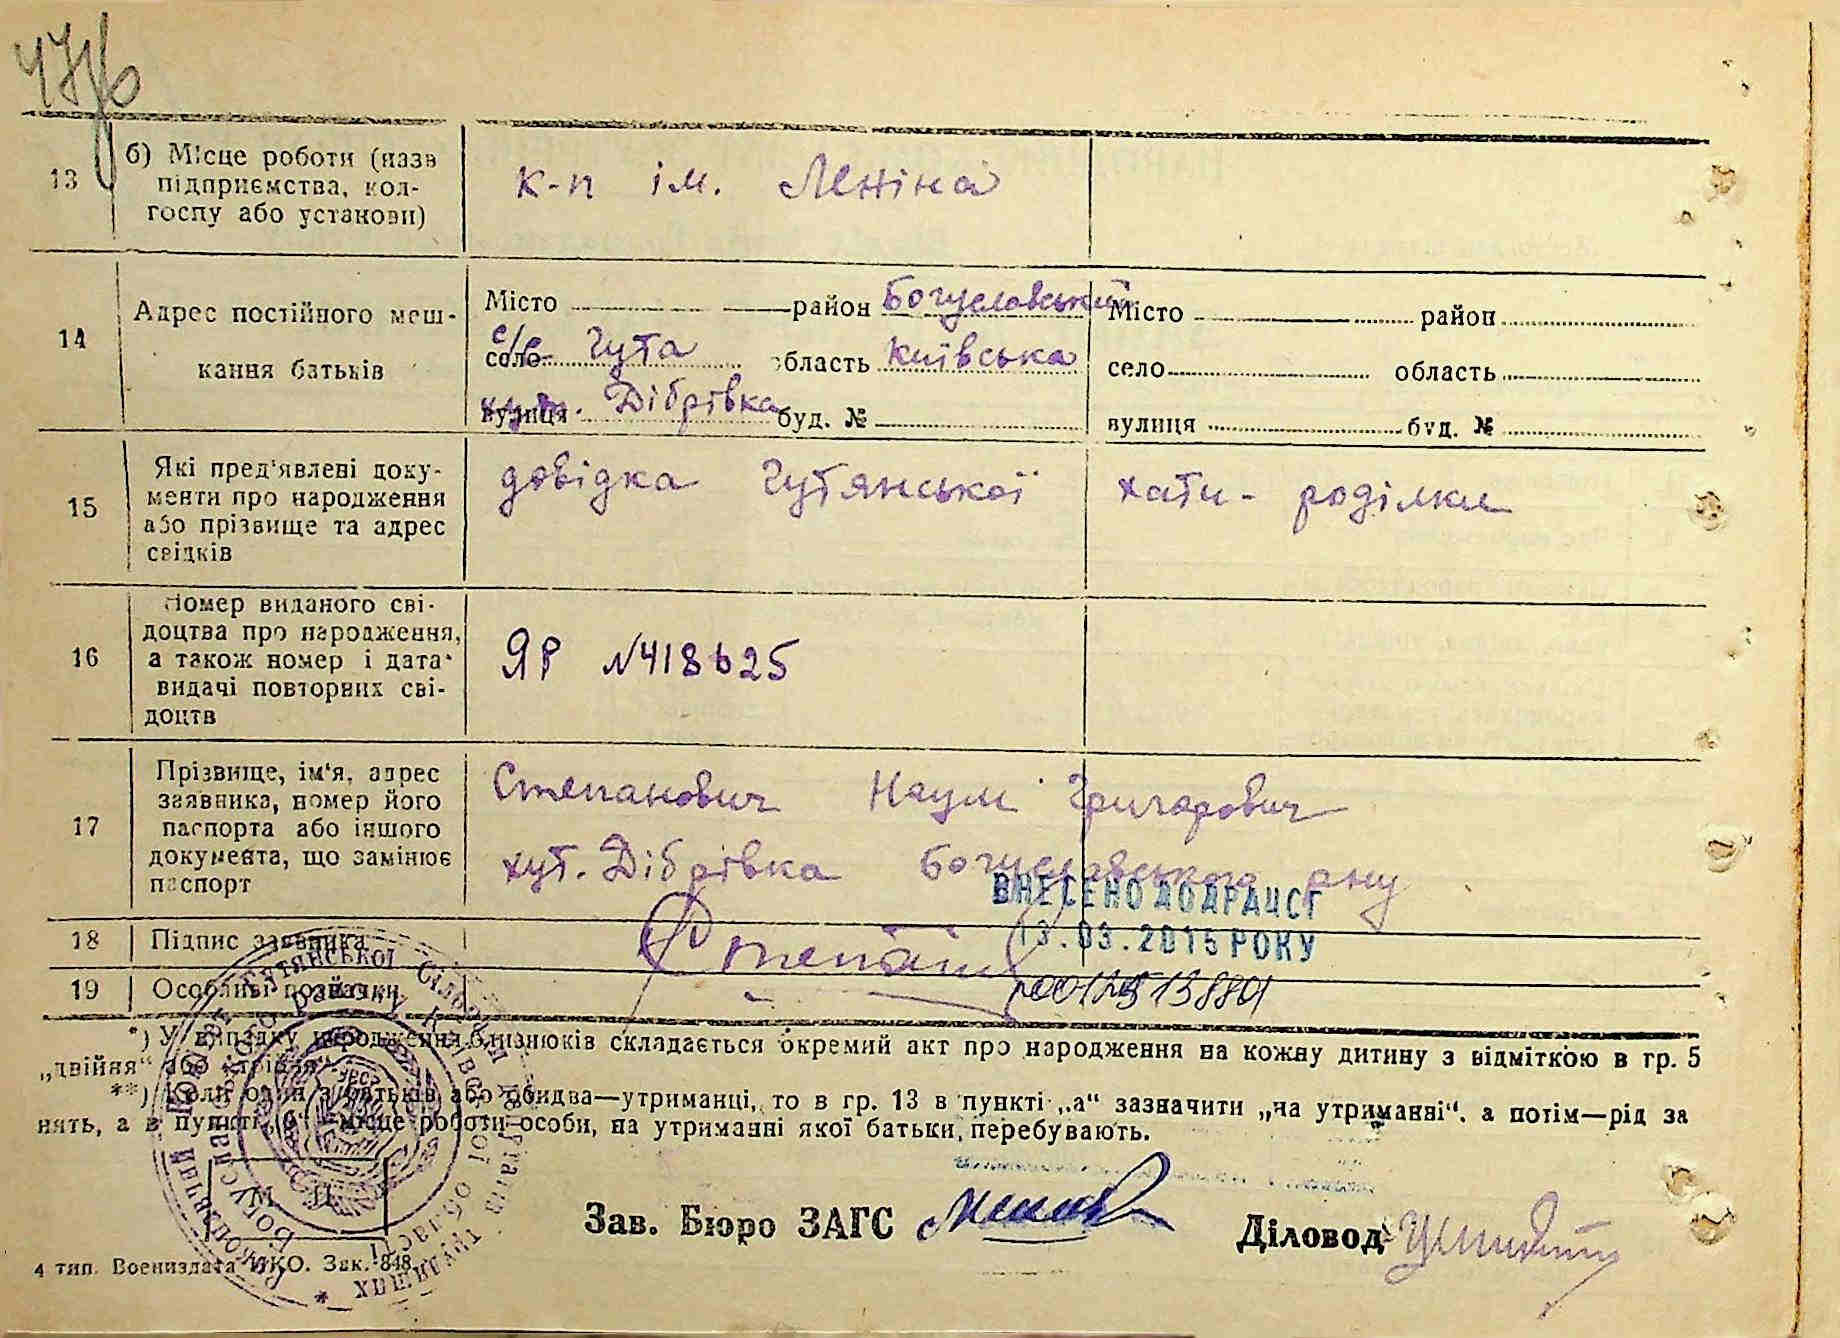 13
б) Місце роботи (назв
підприємства, кол-
госпу або установи)
к-п ім. Леніна
14
Адрес постійного меш-
кання батьків
Місто район Богуславський
с/р. Гута
село область Київська
хут. Дібрівка
вулиця буд. №
Місто район
село область
вулиця буд. №
15
Які пред'явлені доку-
менти про народження
або прізвище та адрес
свідків
довідка Гутянської хати - роділки
16
Номер виданого сві-
доцтва про народження,
а також номер і дата
видачі повторних сві-
доцтв
ЯР №418625
17
Прізвище, ім'я, адрес
заявника, номер його
паспорта або іншого
документа, що замінює
паспорт
Степанович Наум Григорович
хут. Дібрівка Богуславського рну
ВНЕСЕНО ДО ДРАЦСГ
13.03.2015 РОКУ
18 Підпис заявника
19 Особливі позначки
*) У випадку народження близнюків складається окремий акт про народження на кожну дитину з відміткою в гр. 5
„двійня“ або „трійня“.
**) Коли один з батьків або обидва—утриманці, то в гр. 13 в пункті „а“ зазначити „на утриманні“, а потім—рід за
нять, а в пункті „б“ місце роботи особи, на утриманні якої батьки перебувають.
М. П.
Зав. Бюро ЗАГС
Діловод
4 тип. Воениздата УКО. Зак. 848.
Виконавчий комітет Гутянської сільської Ради депутатів трудящих *
Богуславського району Київської області
УРСР